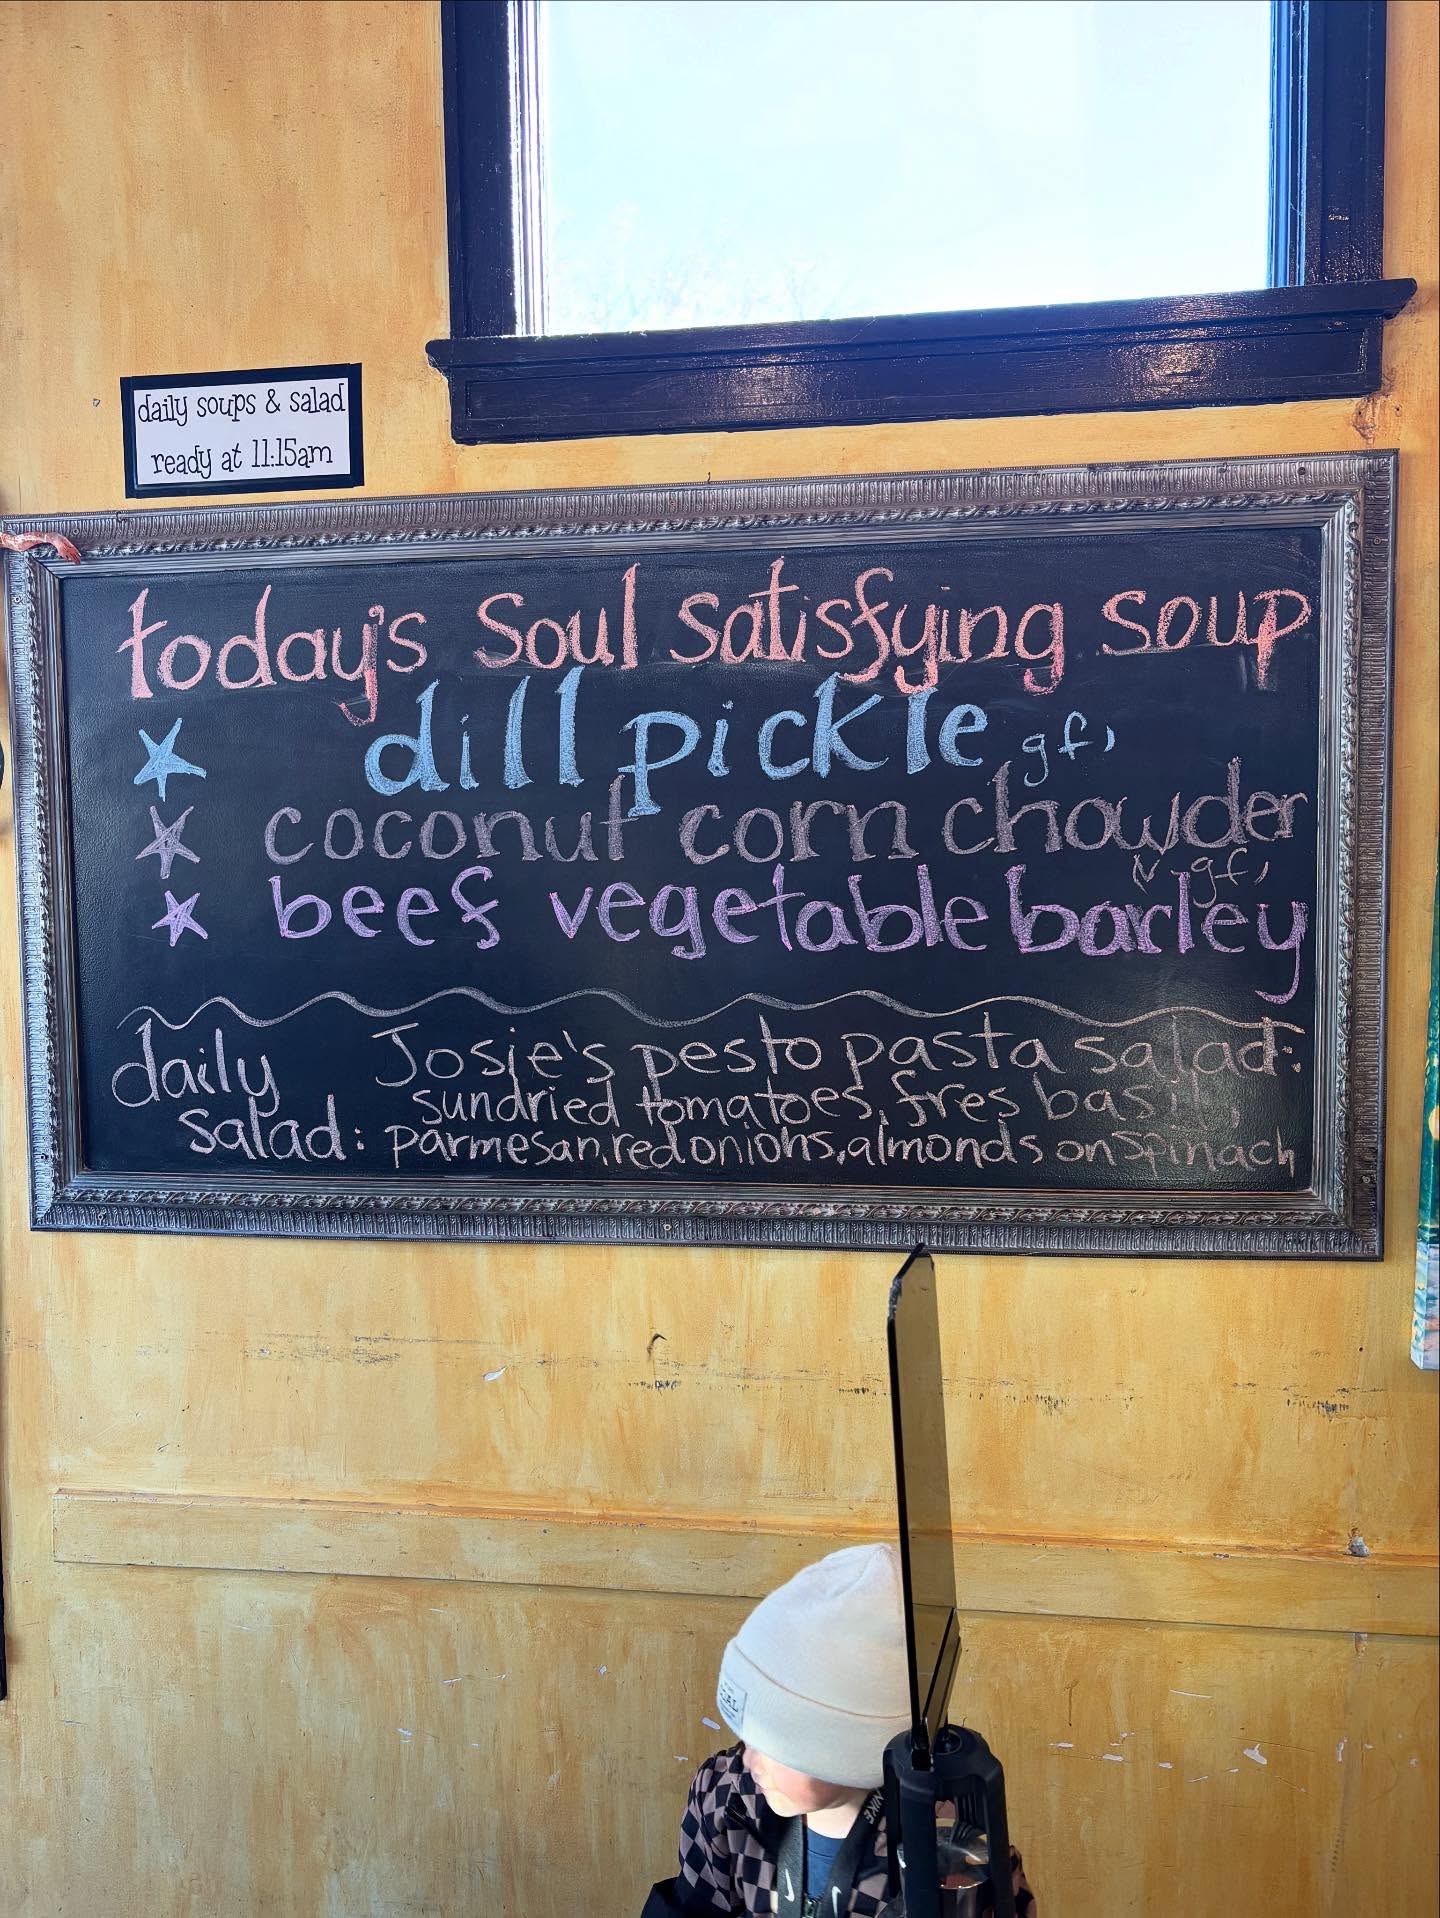 daily soups & salad
ready at 11:15am
today's Soul satisfying soup
dill pickle gf,
coconut corn chowder
v gf,
beef vegetable barley
daily Josie's pesto pasta salad:
sundried tomatoes, fres basil,
salad: parmesan, red onions, almonds on spinach
NIKE